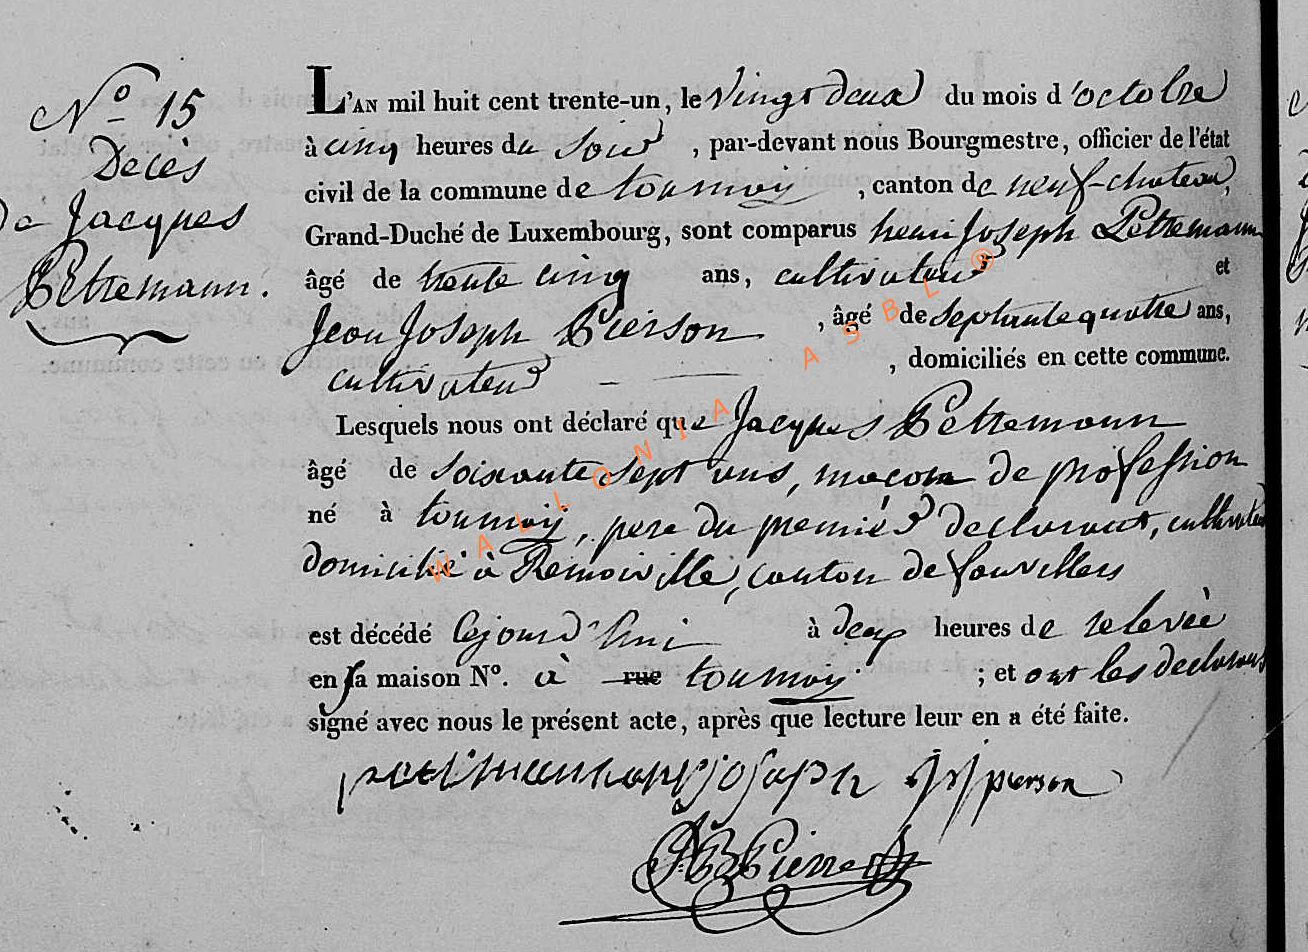 N° 15
Decès
de Jacques
Pettemann.
L'AN mil huit cent trente-un, le vingt deux du mois d'octobre
à cinq heures du soir, par-devant nous Bourgmestre, officier de l'état
civil de la commune de tournay, canton de neuf-chateau,
Grand-Duché de Luxembourg, sont comparus henri Joseph Pettemann
âgé de trente cinq ans, cultivateur et
Jean Joseph Pierson, âgé de septante quatre ans,
cultivateur, domiciliés en cette commune.
Lesquels nous ont déclaré que Jacques Pettemann
âgé de soixante sept ans, macon de profession
né à tournay, pere du premier declarant, cultivateur
domicilié à Remoiville, canton de fauvillers
est décédé cejourd'hui à deux heures de relevée
en sa maison N°. à rue tournay; et ont les declarans
signé avec nous le présent acte, après que lecture leur en a été faite.
joseph jj pierson
WALLONIA ASBL ®